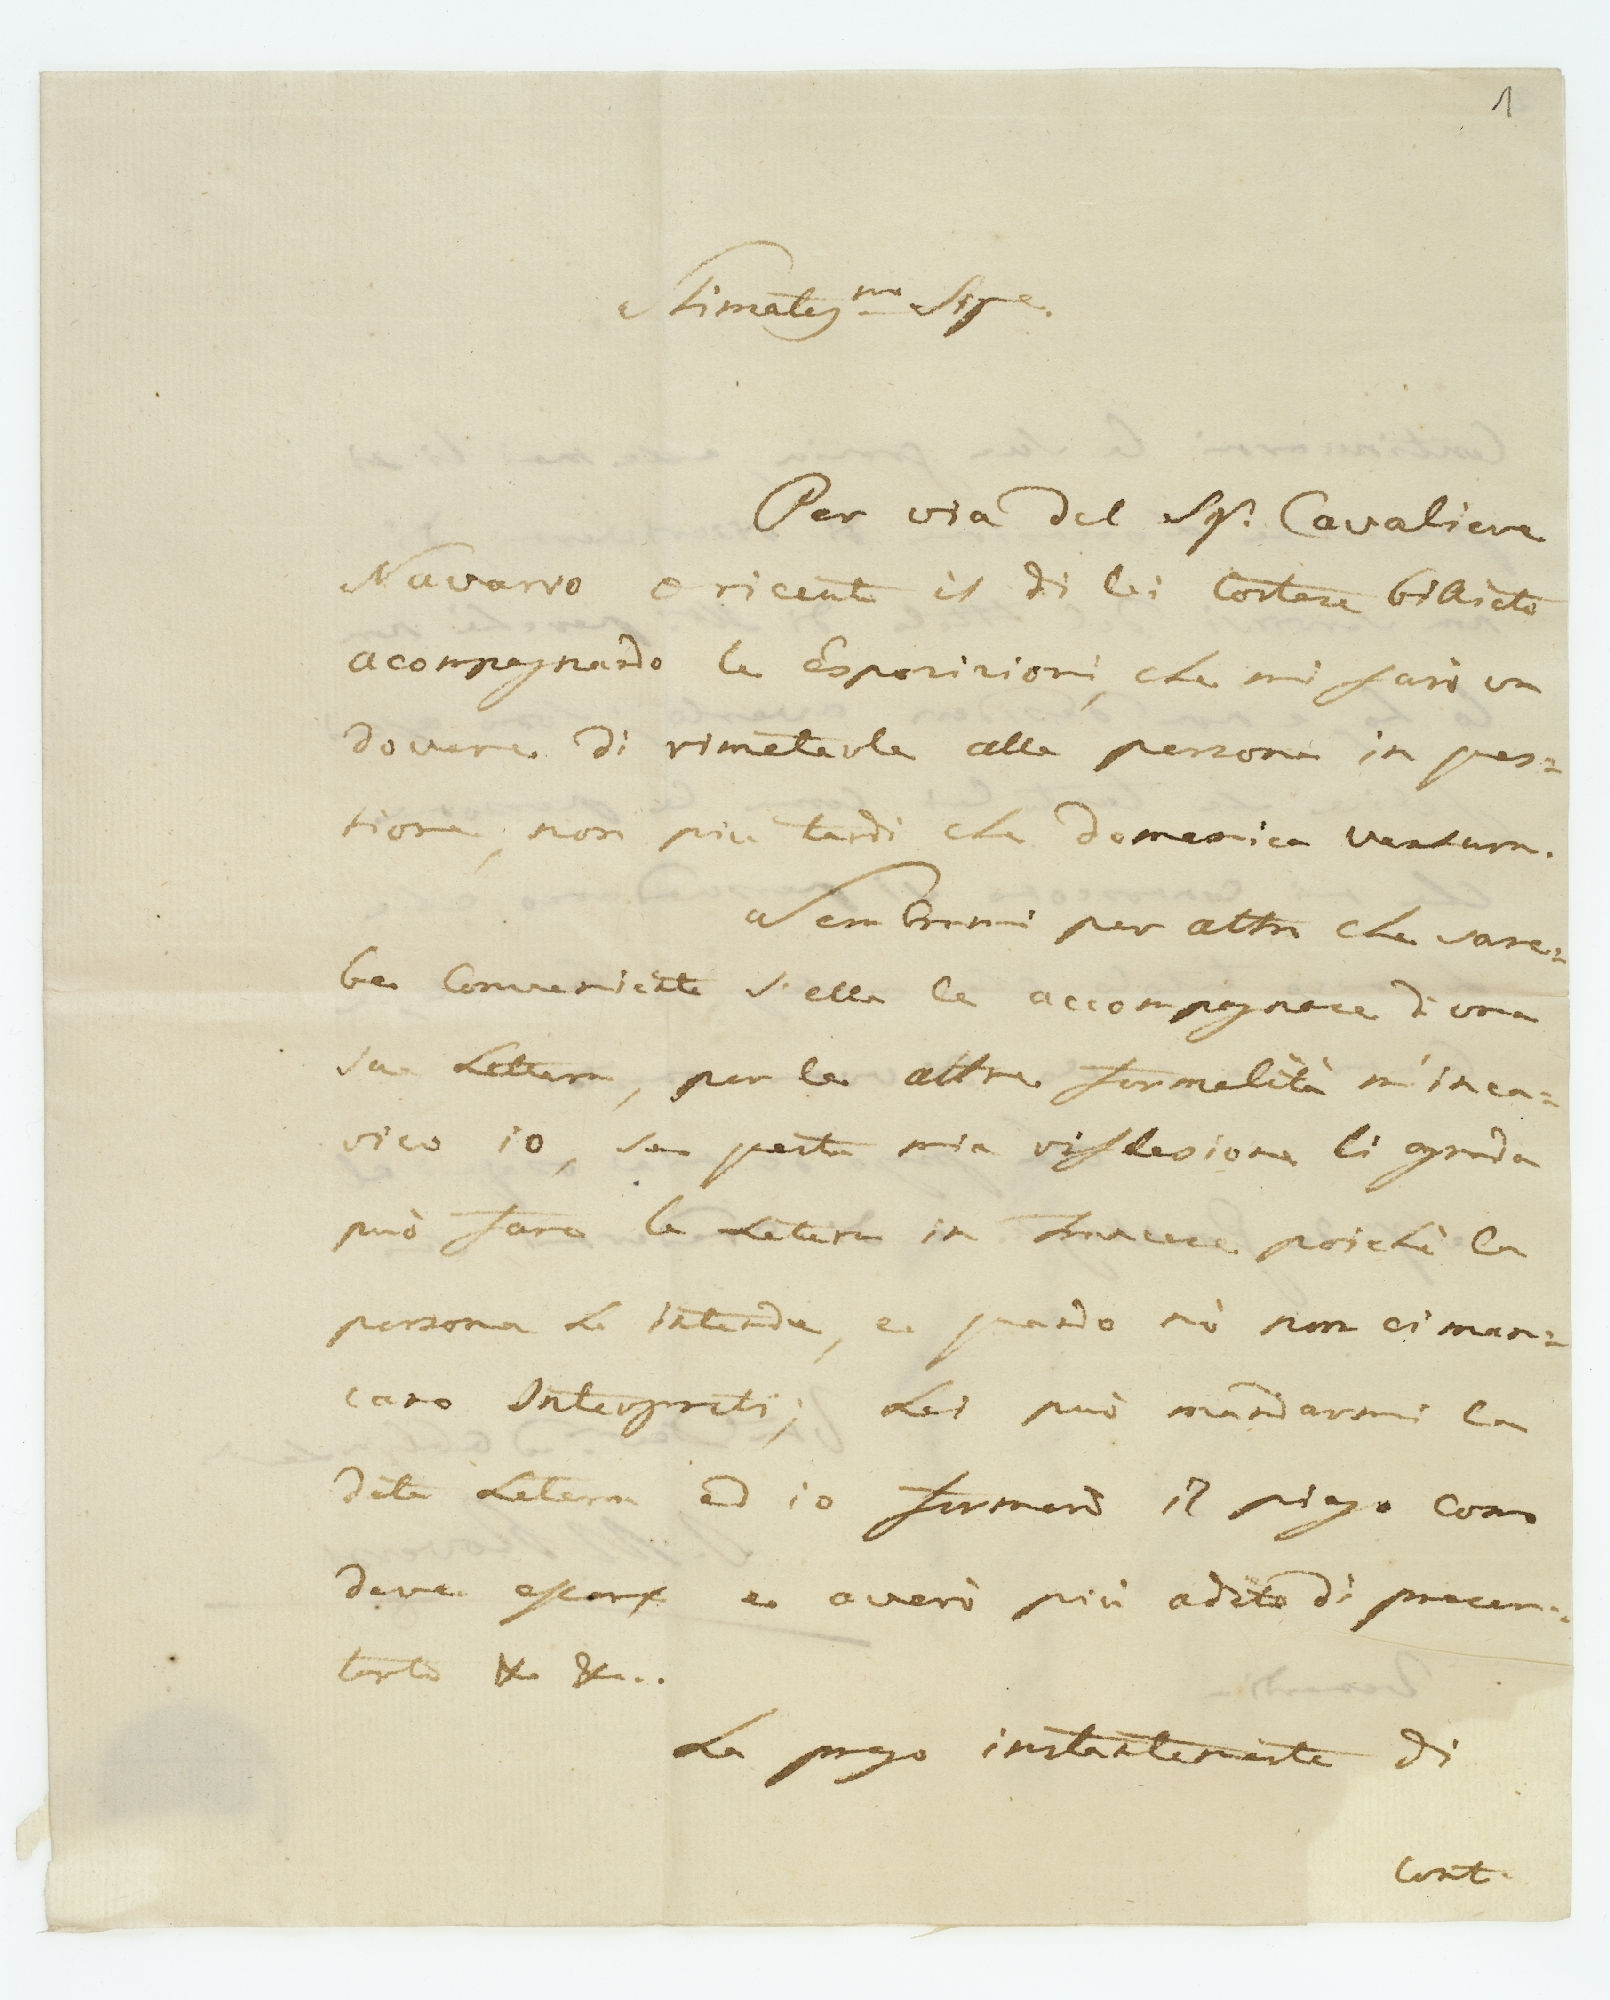 1
Stimatis.mo Sig.e.
Per via del Sig.r Cavaliere
Navarro o ricevuto il di lei Cortese biliето
acompagnando le Esposizioni, che mi farò un
dovere di rimeterle alla persona in ques=
tione, non piu tardi che domenica ventura.
Sembrami per altro che sare=
be Conveniente s'ella le accompagnace di una
sua Lettera, per le altre formalità m'inca=
rico io, se questa mia riflesione li agrada
può fare la Letera in Francece poichè la
persona Lo intende, e quando nò non ci man=
cano Interpreti; Lei può mandarmi la
deta Letera ed io formerò il piego como
deve essere e averò più adito di presen=
tarlo &c &c..
La prego instantemente di
Cont.